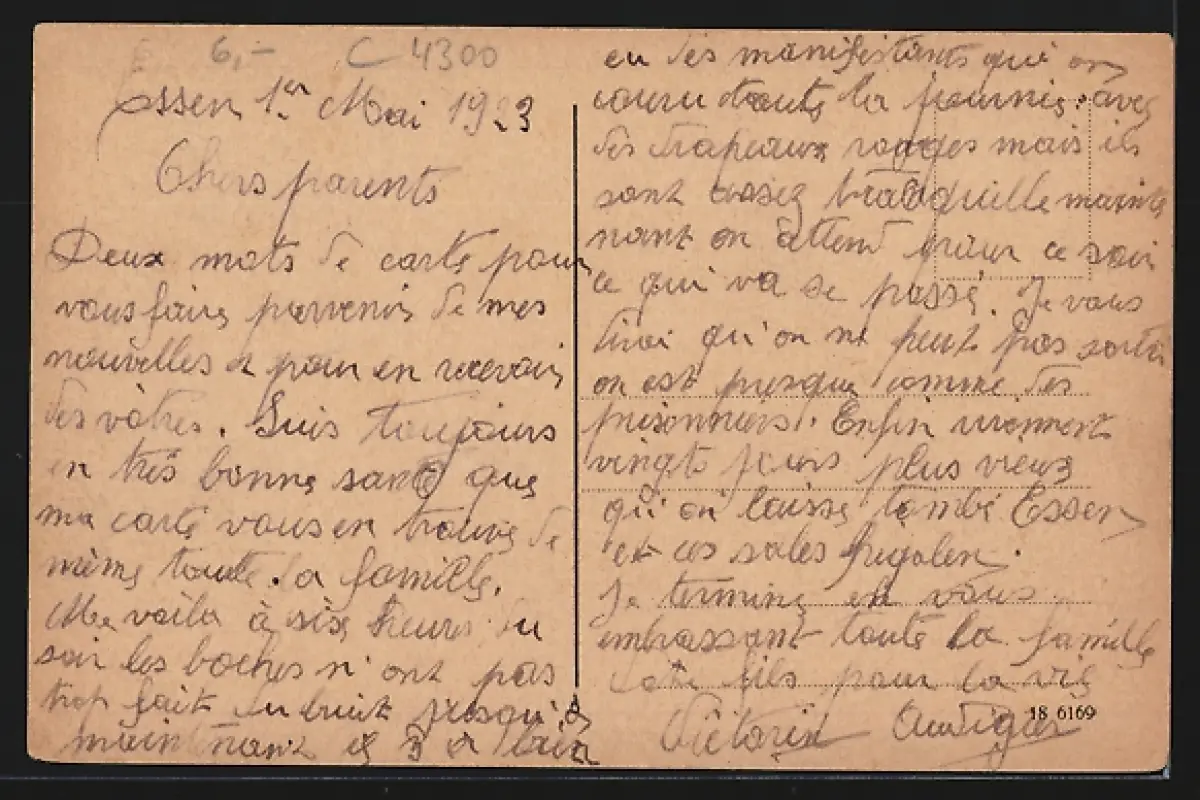 6,- C 4300
Essen 1er Mai 1923
Chers parents
Deux mots de carte pour
vous faire parvenir de mes
nouvelles et pour en recevoir
des vôtres. Suis toujours
en très bonne santé que
ma carte vous en trouve de
même toute la famille.
Me voila à six heures du
soir les boches n'ont pas
trop fait du bruit jusqu'à
maintenant et a bien
eu des manifestants qui on
couru toute la journie avec
des drapeaux rouges mais ils
sont assez tranquille mainte
nant on attend pour ce soir
ce qui va se passé. Je vous
dirai qu'on ne peut pas sortir
on est presque comme des
prisonniers. Enfin vivement
vingt jours plus vieux
qu'on laisse tombé Essen
et ces sales
Je termine en vous
embrassant toute la famille
fils pour la vie
Victorin
18 6169